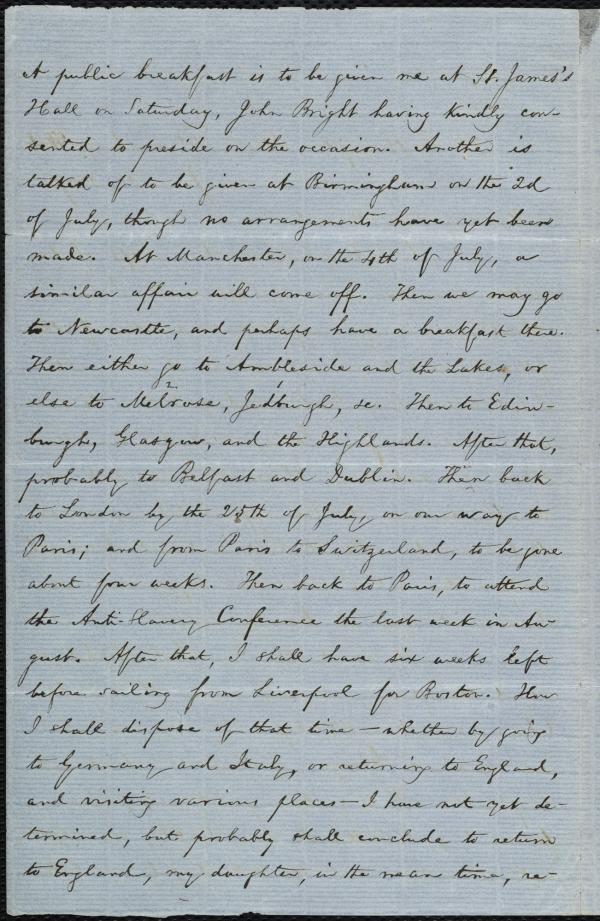 A public breakfast is to be given me at St. James's
Hall on Saturday, John Bright having kindly con-
sented to preside on the occasion. Another is
talked of to be given at Birmingham on the 2d
of July, though no arrangements have yet been
made. At Manchester, on the 4th of July, a
similar affair will come off. Then we may go
to Newcastle, and perhaps have a breakfast there.
Then either go to Ambleside and the Lakes, or
else to Melrose, Jedburgh, &c. Then to Edin-
burgh, Glasgow, and the Highlands. After that,
probably to Belfast and Dublin. Then back
to London by the 25th of July, on our way to
Paris; and from Paris to Switzerland, to be gone
about four weeks. Then back to Paris, to attend
the Anti-Slavery Conference the last week in Au-
gust. After that, I shall have six weeks left
before sailing from Liverpool for Boston. How
I shall dispose of that time — whether by going
to Germany and Italy, or returning to England,
and visiting various places — I have not yet de-
termined, but probably shall conclude to return
to England, my daughter, in the mean time, re-